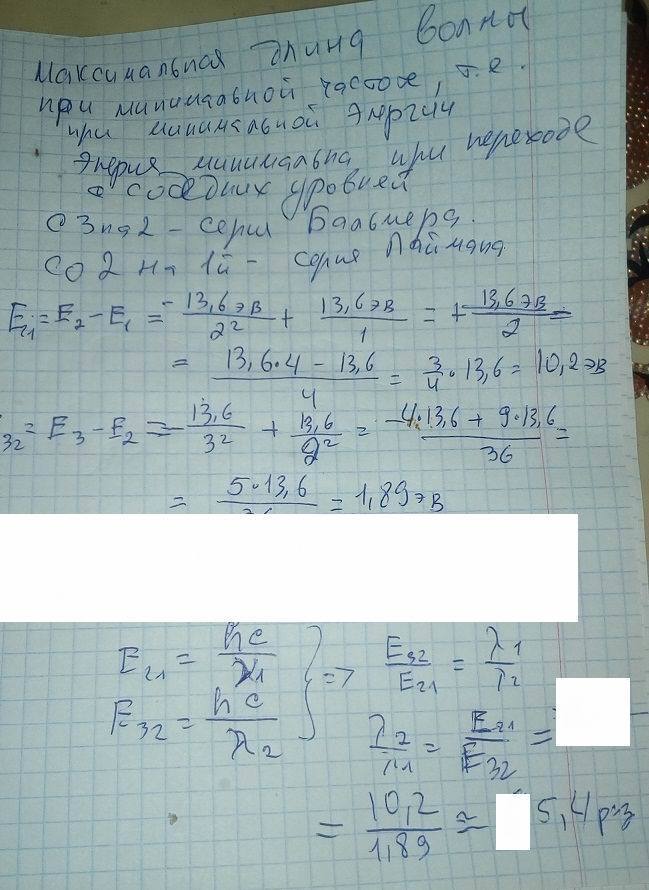 Максимальная длина волны
при минимальной частоте, т.е.
при минимальной Энергии
Энерия минимальна при переходе
с соседних уровней
с 3 на 2 - серия Бальмера.
со 2 на 1й - серия Лаймана.
E21 = E2 - E1 = -13,6 эВ/2² + 13,6 эВ/1 = + 13,6 эВ/2 =
= (13,6·4 - 13,6)/4 = 3/4 · 13,6 = 10,2 эВ
32 = E3 - E2 = -13,6/3² + 13,6/2² = (-4·13,6 + 9·13,6)/36 =
= 5·13,6/36 = 1,89 эВ
E21 = hc/λ1 } => E32/E21 = λ1/λ2
E32 = hc/λ2
λ2/λ1 = E21/E32 =
= 10,2/1,89 ≈ 5,4 раз